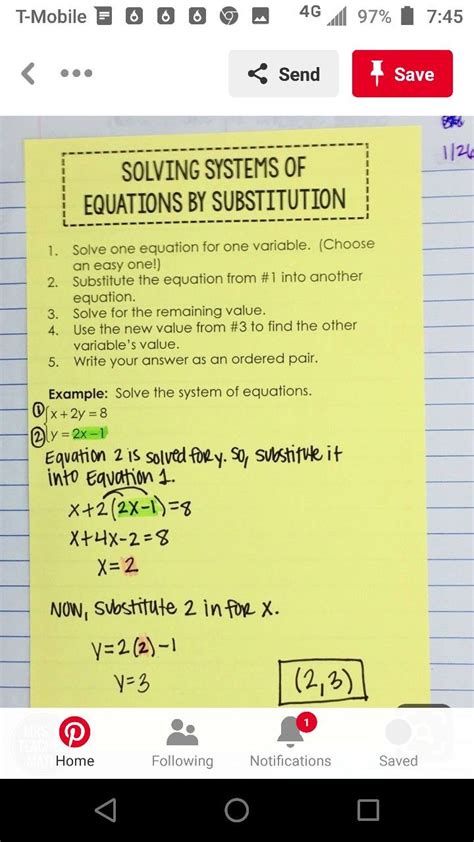 T-Mobile 4G 97% 7:45
Send Save
1/26
SOLVING SYSTEMS OF
EQUATIONS BY SUBSTITUTION
1. Solve one equation for one variable. (Choose
an easy one!)
2. Substitute the equation from #1 into another
equation.
3. Solve for the remaining value.
4. Use the new value from #3 to find the other
variable's value.
5. Write your answer as an ordered pair.
Example: Solve the system of equations.
① x + 2y = 8
② y = 2x – 1
Equation 2 is solved for y. So, substitute it
into Equation 1.
x+2(2x-1)=8
x+4x-2=8
x=2
NOW, substitute 2 in for x.
y=2(2)-1
y=3
(2,3)
1
Home Following Notifications Saved